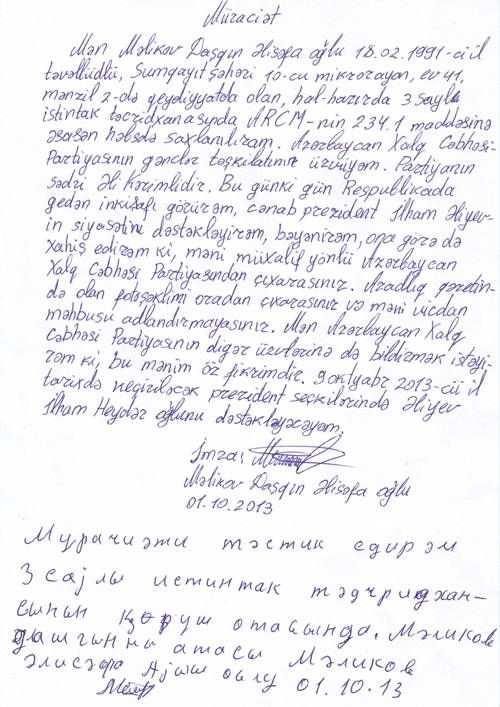 Müraciət
Mən Məlikov Daşqın Əlisəfa oğlu 18.02.1991-ci il
təvəllüdlü, Sumqayıt şəhəri 10-cu mikrorayon, ev 41,
mənzil 2-də qeydiyyatda olan, hal-hazırda 3 saylı
istintak təcridxanasında ARCM-nin 234.1 maddəsinə
əsasən həbsdə saxlanılıram. Azərbaycan Xalq Cəbhəsi-
Partiyasının gənclər təşkilatının üzvüyəm. Partiyanın
sədri Əli Kərimlidir. Bu günki gün Respublikada
gedən inkişafı görürəm, cənab prezident İlham Əliyev-
in siyasətini dəstəkləyirəm, bəyənirəm, ona görə də
xahiş edirəm ki, məni müxalif yönlü Azərbaycan
Xalq Cəbhəsi Partiyasından çıxarasınız. Azadlıq qəzetin-
də olan fotoşəklimi oradan çıxarasınız və məni vicdan
məhbusu adlandırmayasınız. Mən Azərbaycan Xalq
Cəbhəsi Partiyasının digər üzvlərinə də bildirmək istəyi-
rəm ki, bu mənim öz fikrimdir. 9 oktyabr 2013-cü il
tarixdə keçiriləcək prezident seçkilərində Əliyev
İlham Heydər oğlunu dəstəkləyəcəyəm.
İmza:
Məlikov Daşqın Əlisəfa oğlu
01.10.2013
Мурачиәти тәстик едирәм
3 сајлы истинтак тәдчридхан-
сынын қөруш отағында. Мәликов
дашгынни атасы Мәликов
әлисәфа Ајаш оғлу 01.10.13